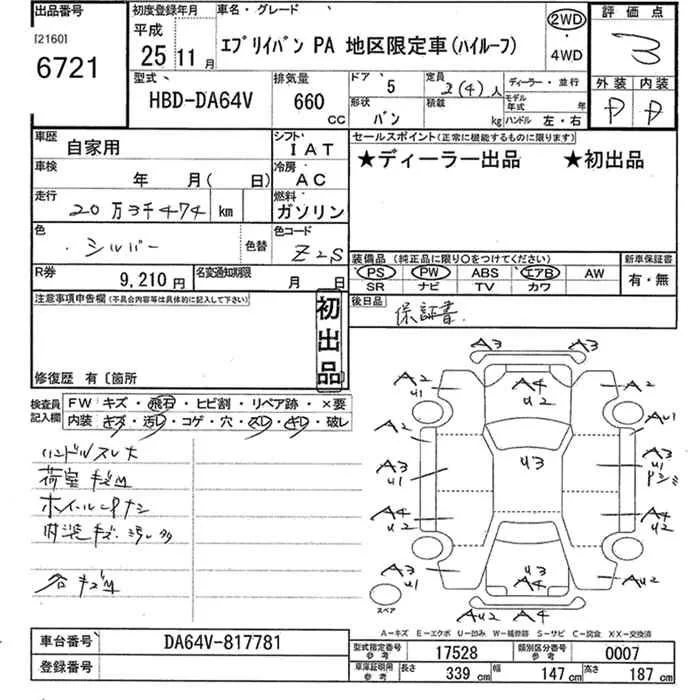 出品番号 初度登録年月 車名・グレード 2WD 評価点
[2160] 平成
6721 25 11月 エブリイバン PA 地区限定車(ハイルーフ) ・ 4WD 3
型式 排気量 ドア 5 定員 2(4)人 ディーラー・並行 外装 内装
HBD-DA64V 660 CC 形状 バン 積載 kg モデル年式 年 ハンドル 左・右 D D
車歴 自家用 シフト IAT セールスポイント(正常に機能するものに限ります)
車検 年 月( 日) 冷房 AC ★ディーラー出品 ★初出品
走行 20万3千474 km 燃料 ガソリン
色 シルバー 色替 色コード Z2S
装備品(純正品に限り○をつけてください) 新車保証書
R券 9,210円 名変通知期限 月 日 PS PW ABS エアB AW 有・無
SR ナビ TV カワ
注意事項申告欄(不具合内容等は具体的に記入して下さい) 初出品 後日品 保証書
修復歴 有〔箇所
検査員記入欄 FW キズ・飛石・ヒビ割・リペア跡・×要
内装 キズ・汚レ・コゲ・穴・スレ・ギレ・破レ
ハンドルスレ大
荷室キズ凹
内装キズ汚レ多
A3 A3
A2 U1 A4 U2 A2 U1
A2 AU1
A3 U1 U3 A3 U1
A4 U2 A4 U2
A3 U1 U3 A4 AU2
スペア AU2 A4
A-キズ E-エクボ U-凹み W-補修跡 S-サビ C-腐食 XX-交換済
車台番号 DA64V-817781 型式指定番号 参考 17528 類別区分番号 参考 0007
登録番号 車庫証明用 参考 長さ 339 cm 幅 147 cm 高さ 187 cm